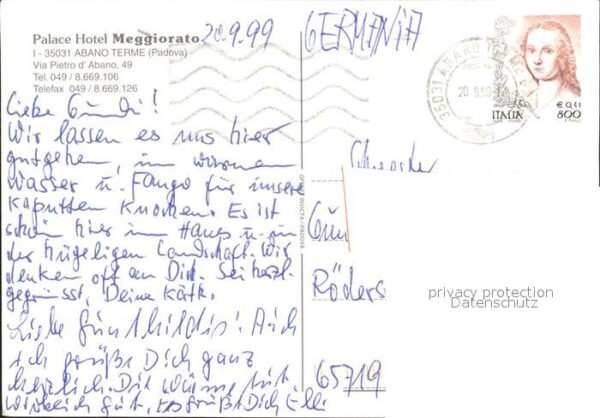 Palace Hotel Meggiorato
I - 35031 ABANO TERME (Padova)
Via Pietro d' Abano, 49
Tel. 049 / 8.669.106
Telefax 049 / 8.669.126
20.9.99
GERMANIA
35031 ABANO TERME
ITALIA
€ 0,41
800
Liebe Gundi!
Wir lassen es uns hier
gutgehen, im warmen
Wasser u. Fango für unsere
kaputten Knochen. Es ist
schön hier im Haus u. in
der hügeligen Landschaft. Wir
denken oft an Dich. Sei herzl.
gegrüsst, Deine Käth.
Liebe Gunthildis! Auch
ich grüße Dich ganz
herzlich. Die Wärme tut
wirklich gut, es grüßt Dich Elli
Gun
Röders
65719
privacy protection
Datenschutz